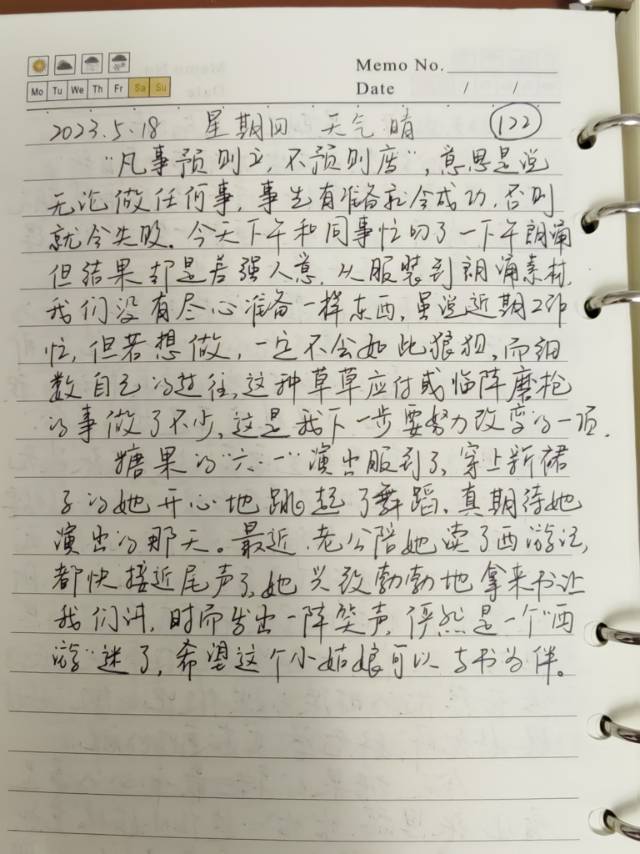 Mo Tu We Th Fr Sa Su
Memo No.
Date / /
2023.5.18 星期四 天气晴 122
"凡事预则立,不预则废",意思是说
无论做任何事,事先有准备就会成功,否则
就会失败。今天下午和同事忙叨了一下午朗诵
但结果却是差强人意,从服装到朗诵素材,
我们没有尽心准备一样东西,虽说近期工作
忙,但若想做,一定不会如此狼狈,而细
数自己的过往,这种草草应付或临阵磨枪
的事做了不少,这是我下一步要努力改变的一项.
糖果的"六·一"演出服到了,穿上新裙
子的她开心地跳起了舞蹈,真期待她
演出的那天。最近,老公陪她读了西游记,
都快接近尾声了,她兴致勃勃地拿来书让
我们讲,时而发出一阵笑声,俨然是一个"西
游"迷了,希望这个小姑娘可以与书为伴。